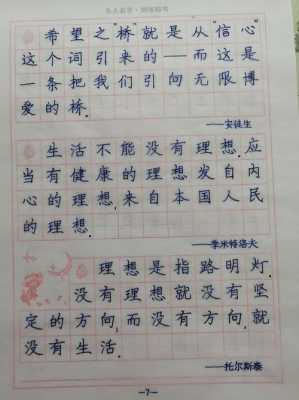 名人名言·钢笔临书
希望之“桥”就是从“信心”
这个词引来的——而这是
一条把我们引向无限博
爱的桥.
——安徒生
生活不能没有理想.应
当有健康的理想发自内
心的理想,来自本国人民
的理想.
——季米特洛夫
理想是指路明灯.
没有理想就没有坚
定的方向,而没有方向,就
没有生活.
——托尔斯泰
—7—